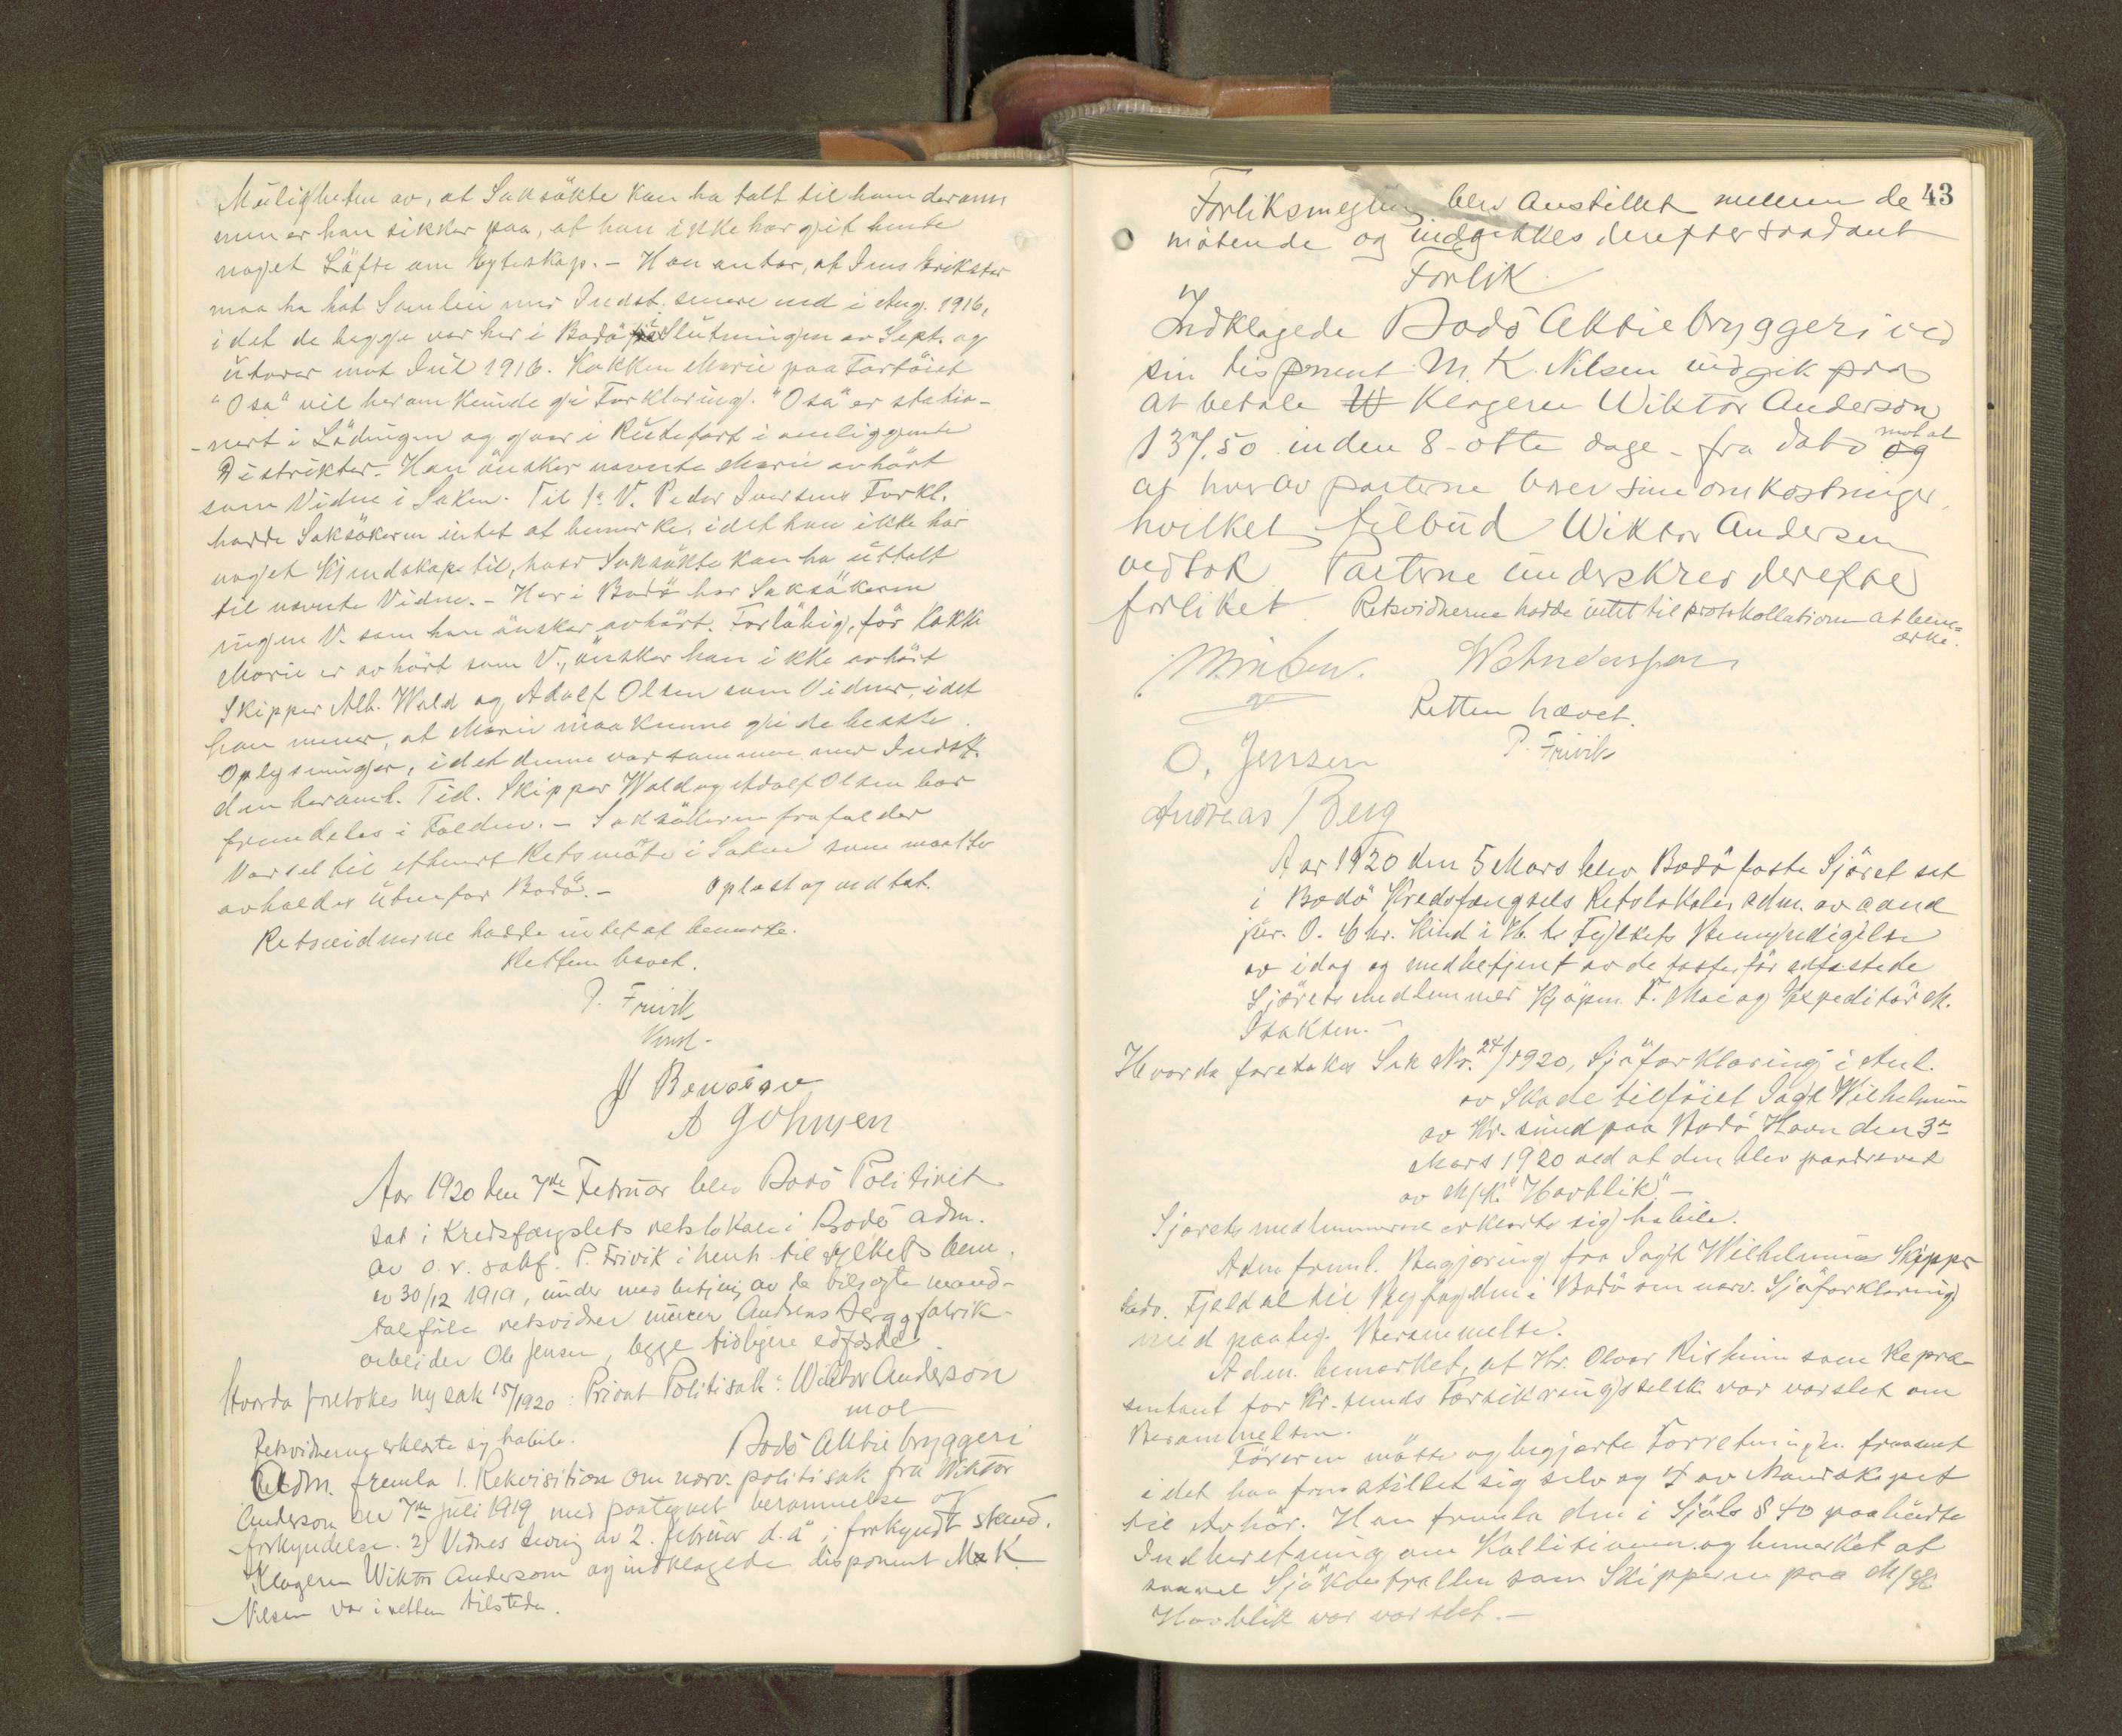 Muligheten av, at Saksökte kan ha talt til ham derom
men er han sikker paa, at han ikke har git hende
noget Löfte om Egteskap. - Han antar, at Jens Erikstar
maa ha hat Samleie med Indst. senere end i Aug. 1916,
idet de begge var her i Bodö i Slutningen av Sept. og
utover mot Jul 1916. Kokken Marie paa Fartöiet
"Osa" vil herom kunde gi Forklaring. "Osa" er statio-
-nert i Lödingen og gaar i Rutefart i omliggende
Distrikter. Han önsker nævnte Marie avhört
som Vidne i Saken. Til 1ste V. Peder Iversens Forkl.
hadde Saksökeren intet at bemerke, idet han ikke har
noget Kjendskap til, hvad Saksökte kan ha uttalt
til nævnte Vidne. - Her i Bodö har Saksökeren
ingen V. som han önsker avhört. Forlöbig, för Kokke
Marie er avhört som V., önsker han ikke avhört
Skipper Alb. Wold og Adolf Olsen som Vidner, idet
han mener, at Marie maa kunne gi de beste
Oplysninger, idet denne var sammen med Indst.
den heromh. Tid. Skipper Wold og Adolf Olsen bor
fremdeles i Folden. - Saksökeren frafalder
Varsel til ethvert Retsmöte i Saken som maatte
avholdes utenfor Bodö. - Oplæst og vedtat.
Retsvidnerne hadde intet at bemerke.
Retten hævet.
P. Frivik
Konst.
A Johnsen
Aar 1920 den 7de Februar blev Bodö Politiret
sat i Kredsfængslets retslokale i Bodö adm.
av o.r. sakf. P. Frivik i henh. til fylkets bem.
av 30/12 1919, under med betjening av de tilsagte mand-
talsförte retsvidner murer Andreas Berg og fabrik-
arbeider Ole Jensen, begge tidligere edfæstede
Hvorda foretokes ny sak 15/1920: Privat Politisak: Wiktor Anderson
mot
Retsvidnerne erklærte sig habile. Bodö Aktiebryggeri
Adm. fremla 1. Rekvisition om nærv. politisak fra Wiktor
Anderson den 7de juli 1919 med paategnet berammelse og
forkyndelse. 2) Vidnestevning av 2. februar d.å i forkyndt stand.
Klageren Wiktor Anderson og indklagede disponent M. K
Nilsen var i retten tilstede.
43
Forliksmegling blev anstillet mellem de
mötende og indgikkes derefter saadant
Forlik
Indklagede Bodö Aktiebryggeri ved
sin disponent M. K. Nilsen indgik paa
at betale W Klageren Wiktor Anderson
137,50 inden 8-otte dage - fra dato og mot at
at hver av parterne bærer sine omkostninger,
hvilket tilbud Wiktor Andersen
vedtok Parterne underskrev derefter
forliket. Retsvidnerne hadde intet til protokollationen at bem=
ærke.
W Anderssen
Retten hævet.
P. Frivik
O. Jensen
Andreas Berg
Aar 1920 den 5 Mars blev Bodö faste Sjöret sat
i Bodö Kredsfængsels Retslokale, adm. av cand
jur. O. Chr. Kind i H. t. Fylkets Bemyndigelse
av idag og medbetjent av de faste, för edfæstede
Sjöretsmedlemmer Kjöpm. F. Moe og Expeditör M.
Isaksen. -
Hvorda foretokes Sak Nr. 24/1920, Sjöforklaring i Anl.
av Skade tilföiet Jagt Wilhelmine
av Kr.sund paa Bodö Havn den 3de
Mars 1920 ved at den blev paadrevet
av M/K. "Havblik". -
Sjöretsmedlemmerne erklærte sig habile.
Adm. freml. Begjæring fra Jagt Wilhelmines Skipper
Ludv. Fjeldal til Byfogden i Bodö om nærv. Sjöforklaring
med paateg. Berammelse.
Adm. bemerket, at Hr. Olvar Rishim som Repræ-
sentant for Kr.sunds Forsikringsselsk. var varslet om
Berammelsen.
Föreren mötte og begjærte Forretningen fremmet
idet han fremstillet sig selv og 4 av Mandskapet
til Avhör. Han fremla den i Sjöl. § 40 paabudte
Indberetning om Kollisionen og bemerket at
saavel Sjökontrollen som Skipperen paa M/K.
Havblik var varslet. -